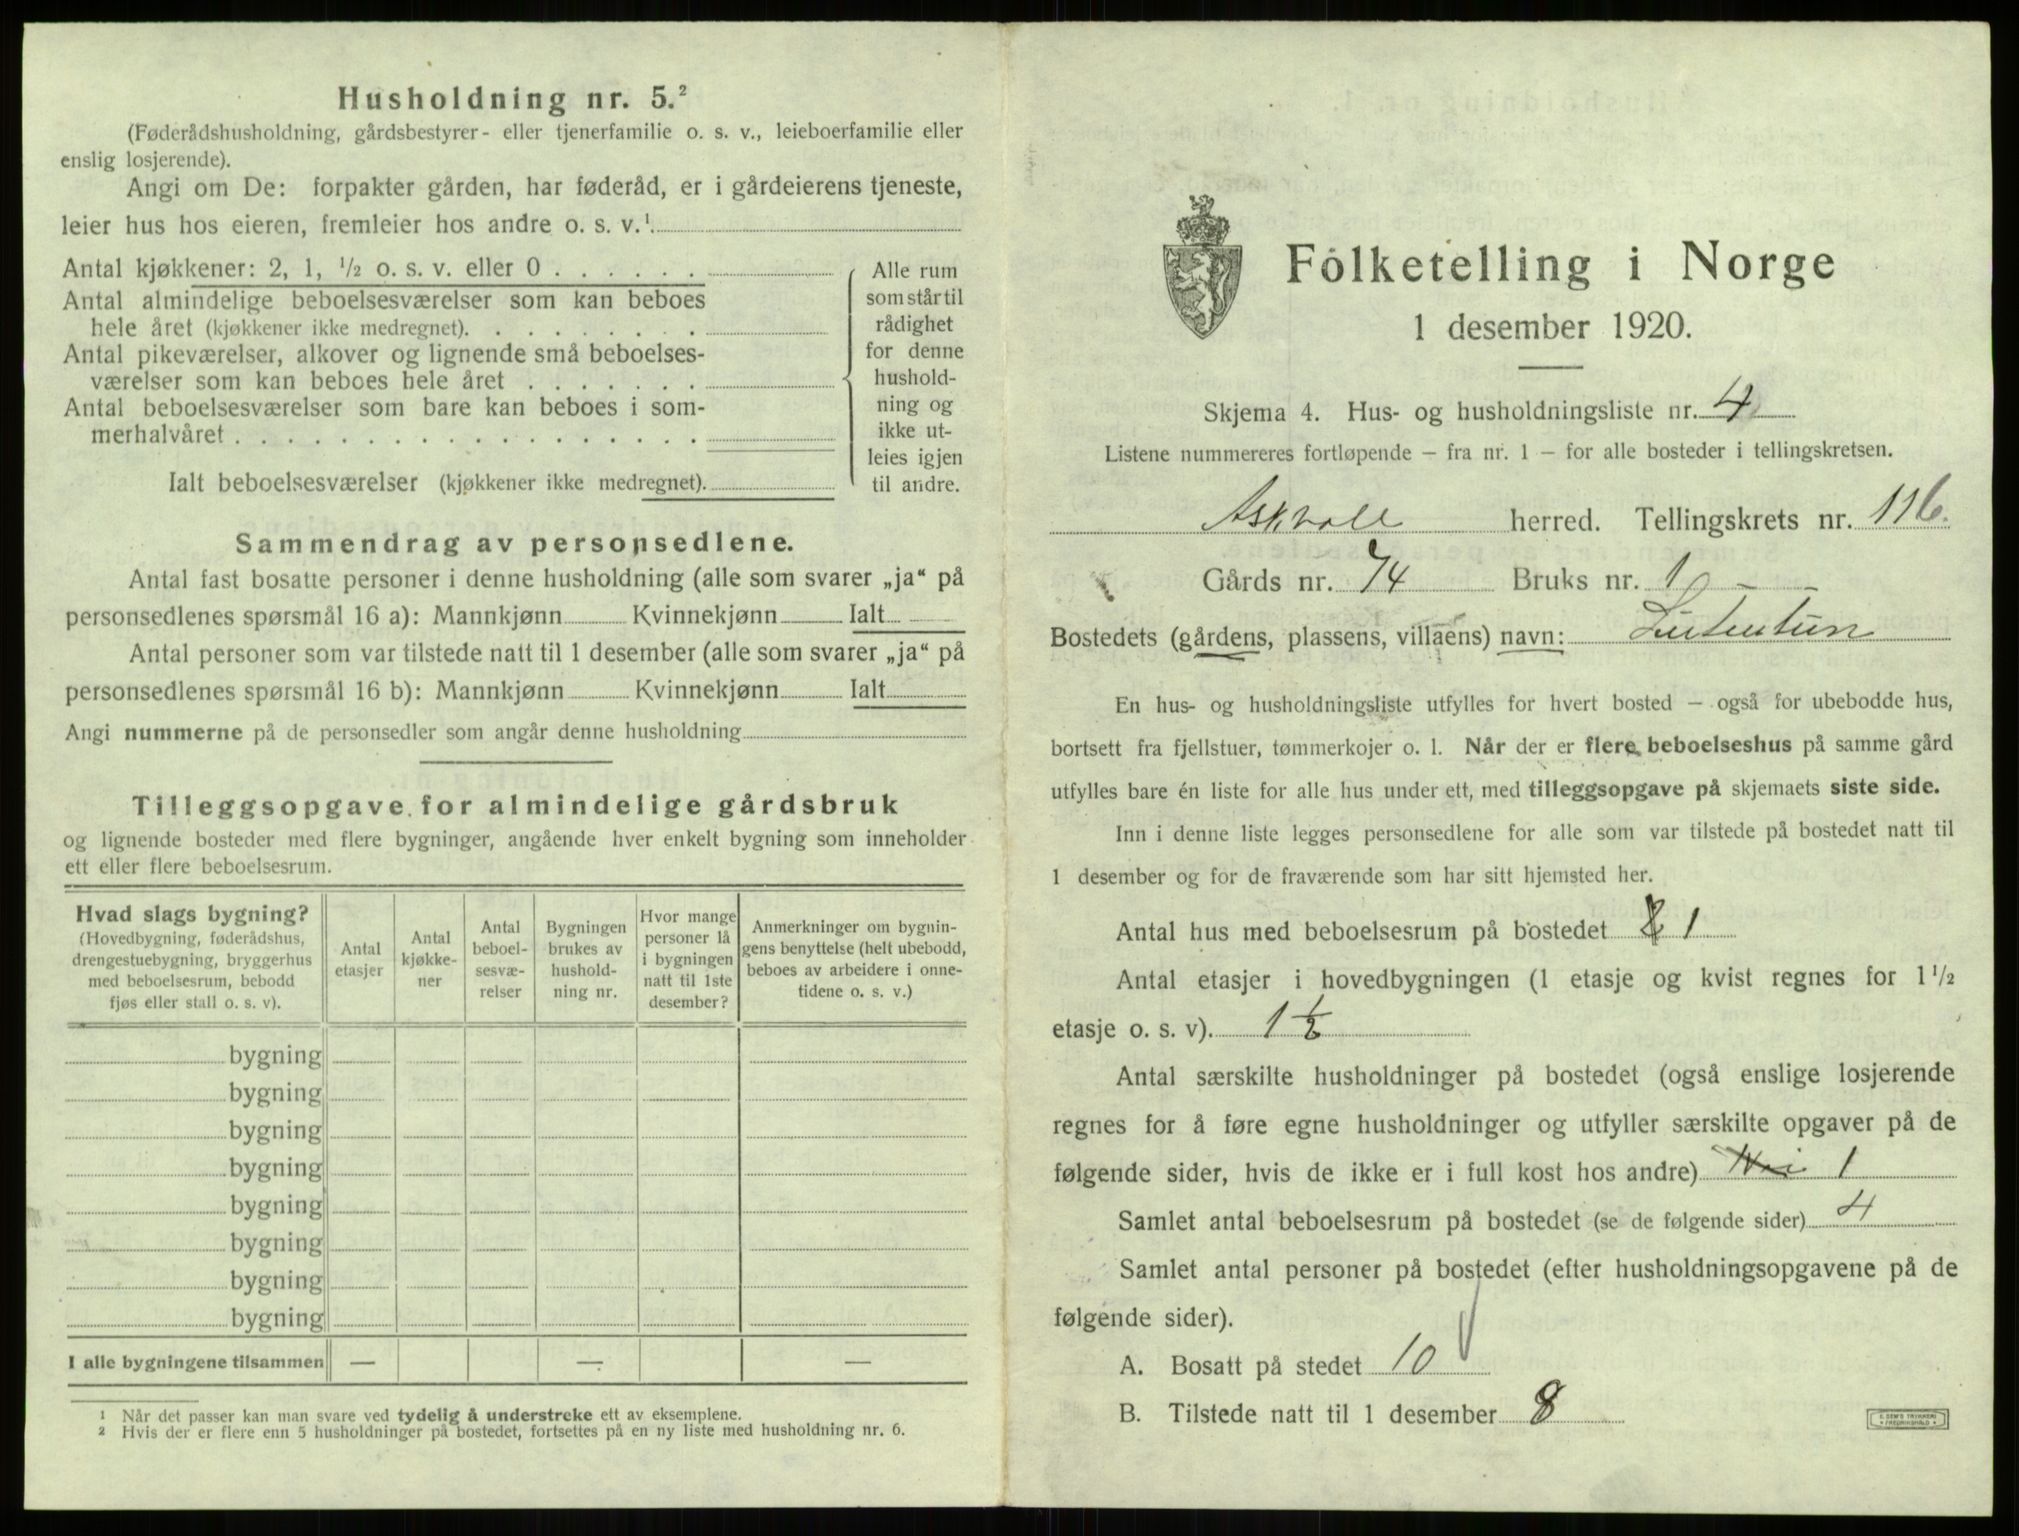 Husholdning nr. 5.²
(Føderådshusholdning, gårdsbestyrer- eller tjenerfamilie o. s. v., leieboerfamilie eller
enslig losjerende).
Angi om De: forpakter gården, har føderåd, er i gårdeierens tjeneste,
leier hus hos eieren, fremleier hos andre o. s. v.¹
Antal kjøkkener: 2, 1, ½ o. s. v. eller 0
Antal almindelige beboelsesværelser som kan beboes
hele året (kjøkkener ikke medregnet).
Antal pikeværelser, alkover og lignende små beboelses-
værelser som kan beboes hele året
Antal beboelsesværelser som bare kan beboes i som-
merhalvåret
Ialt beboelsesværelser (kjøkkener ikke medregnet).
Alle rum
som står til
rådighet
for denne
hushold-
ning og
ikke ut-
leies igjen
til andre.
Sammendrag av personsedlene.
Antal fast bosatte personer i denne husholdning (alle som svarer „ja“ på
personsedlenes spørsmål 16 a): Mannkjønn Kvinnekjønn Ialt
Antal personer som var tilstede natt til 1 desember (alle som svarer „ja“ på
personsedlenes spørsmål 16 b): Mannkjønn Kvinnekjønn Ialt
Angi nummerne på de personsedler som angår denne husholdning
Tilleggsopgave for almindelige gårdsbruk
og lignende bosteder med flere bygninger, angående hver enkelt bygning som inneholder
ett eller flere beboelsesrum.
Hvad slags bygning?
(Hovedbygning, føderådshus,
drengestuebygning, bryggerhus
med beboelsesrum, bebodd
fjøs eller stall o. s. v).
Antal
etasjer
Antal
kjøkke-
ner
Antal
beboel-
sesvæ-
relser
Bygningen
brukes av
hushold-
ning nr.
Hvor mange
personer lå
i bygningen
natt til 1ste
desember?
Anmerkninger om bygnin-
gens benyttelse (helt ubebodd,
beboes av arbeidere i onne-
tidene o. s. v.)
bygning
bygning
bygning
bygning
bygning
bygning
bygning
bygning
I alle bygningene tilsammen — — —
¹ Når det passer kan man svare ved tydelig å understreke ett av eksemplene.
² Hvis der er flere enn 5 husholdninger på bostedet, fortsettes på en ny liste med husholdning nr. 6.
Folketelling i Norge
1 desember 1920.
Skjema 4. Hus- og husholdningsliste nr. 4
Listene nummereres fortløpende – fra nr. 1 – for alle bosteder i tellingskretsen.
Askvoll herred. Tellingskrets nr. 116.
Gårds nr. 74 Bruks nr. 1
Bostedets (gårdens, plassens, villaens) navn:
En hus- og husholdningsliste utfylles for hvert bosted – også for ubebodde hus,
bortsett fra fjellstuer, tømmerkojer o. l. Når der er flere beboelseshus på samme gård
utfylles bare én liste for alle hus under ett, med tilleggsopgave på skjemaets siste side.
Inn i denne liste legges personsedlene for alle som var tilstede på bostedet natt til
1 desember og for de fraværende som har sitt hjemsted her.
Antal hus med beboelsesrum på bostedet 1
Antal etasjer i hovedbygningen (1 etasje og kvist regnes for 1½
etasje o. s. v). 1½
Antal særskilte husholdninger på bostedet (også enslige losjerende
regnes for å føre egne husholdninger og utfyller særskilte opgaver på de
følgende sider, hvis de ikke er i full kost hos andre) 1
Samlet antal beboelsesrum på bostedet (se de følgende sider) 4
Samlet antal personer på bostedet (efter husholdningsopgavene på de
følgende sider).
A. Bosatt på stedet 10
B. Tilstede natt til 1 desember 8
E. SEM'S TRYKKERI
FREDRIKSHALD